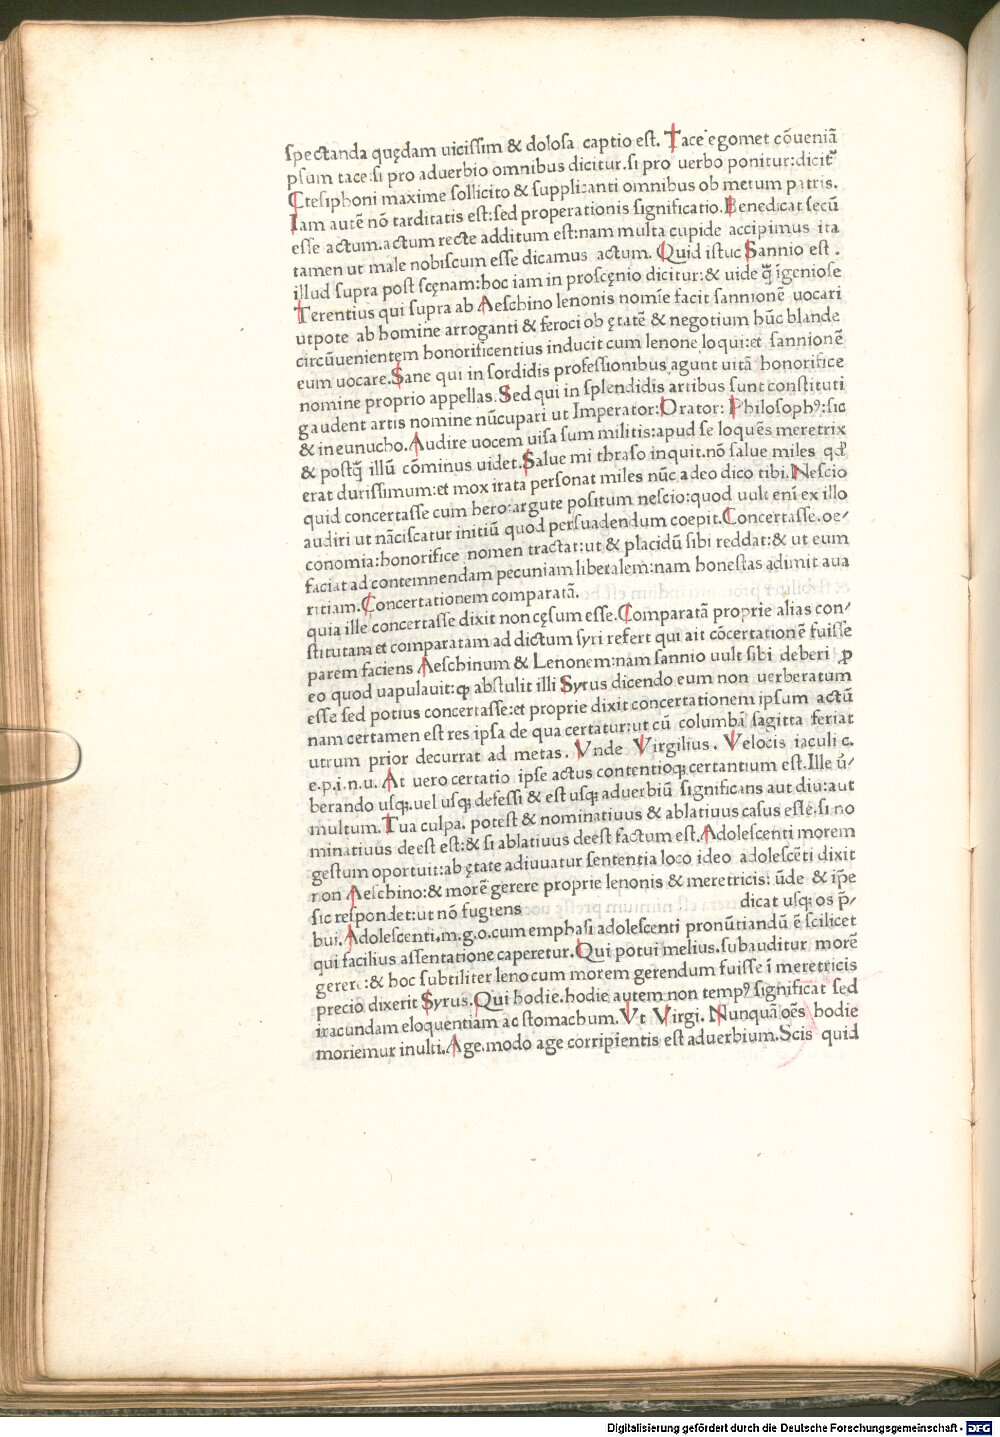 spectanda quędam uicissim & dolosa captio est. Tace egomet cōueniā
psum tace:si pro aduerbio omnibus dicitur.si pro uerbo ponitur:dicit᷑
Ctesiphoni maxime sollicito & supplicanti omnibus ob metum patris.
Iam autē nō tarditatis est:sed properationis significatio.Benedicat secū
esse actum.actum recte additum est:nam multa cupide accipimus ita
tamen ut male nobiscum esse dicamus actum. Quid istuc Sannio est .
illud supra post scęnam:hoc iam in proscęnio dicitur:& uide q̄ īgeniose
Terentius qui supra ab Aeschino lenonis nomīe facit sannionē uocari
utpote ab homine arroganti & feroci ob ętatē & negotium hūc blande
circūuenientem honorificentius inducit cum lenone loqui:et sannionē
eum uocare.Sane qui in sordidis professionibus agunt uitā honorifice
nomine proprio appellas.Sed qui in splendidis artibus sunt constituti
gaudent artis nomine nūcupari ut Imperator:Orator: Philosophꝰ:sic
& in eunucho.Audire uocem uisa sum militis:apud se loquēs meretrix
& postq̄ illū cōminus uidet.Salue mi thraso inquit.nō salue miles qđ
erat durissimum:et mox irata personat miles nūc adeo dico tibi.Nescio
quid concertasse cum hero:argute positum nescio:quod uult enī ex illo
audiri ut nāciscatur initiū quod persuadendum coepit.Concertasse.oe/
conomia:honorifice nomen tractat:ut & placidū sibi reddat:& ut eum
faciat ad contemnendam pecuniam liberalem:nam honestas adimit aua
ritiam.Concertationem comparatā.
quia ille concertasse dixit non cęsum esse.Comparatā proprie alias con/
stitutam et comparatam ad dictum syri refert qui ait cōcertationē fuisse
parem faciens Aeschinum & Lenonem:nam sannio uult sibi deberi ꝓ
eo quod uapulauit:qꝫ abstulit illi Syrus dicendo eum non uerberatum
esse sed potius concertasse:et proprie dixit concertationem ipsum actū
nam certamen est res ipsa de qua certatur:ut cū columbā sagitta feriat
utrum prior decurrat ad metas. Vnde Virgilius. Velocis iaculi c.
e.p.i.n.u.At uero certatio ipse actus contentioqꝫ certantium est.Ille ū/
berando usqꝫ.uel usqꝫ defessi & est usqꝫ aduerbiū significans aut diu:aut
multum.Tua culpa. potest & nominatiuus & ablatiuus casus esse.si no
minatiuus deest est:& si ablatiuus deest factum est.Adolescenti morem
gestum oportuit:ab ętate adiuuatur sententia loco ideo adolescēti dixit
non Aeschino:& morē gerere proprie lenonis & meretricis: ūde & ip̄e
sic respondet:ut nō fugiens dicat usqꝫ os p̄/
bui. Adolescenti.m.g.o.cum emphasi adolescenti pronūtiandū ē scilicet
qui facilius assentatione caperetur.Qui potui melius.subauditur morē
gerere:& hoc subtiliter leno cum morem gerendum fuisse ī meretricis
precio dixerit Syrus.Qui hodie.hodie autem non tempꝰ significat sed
iracundam eloquentiam ac stomachum.Vt Virgi. Nunquā oēs hodie
moriemur inulti.Age.modo age corripientis est aduerbium.Scis quid
Digitalisierung gefördert durch die Deutsche Forschungsgemeinschaft - DFG